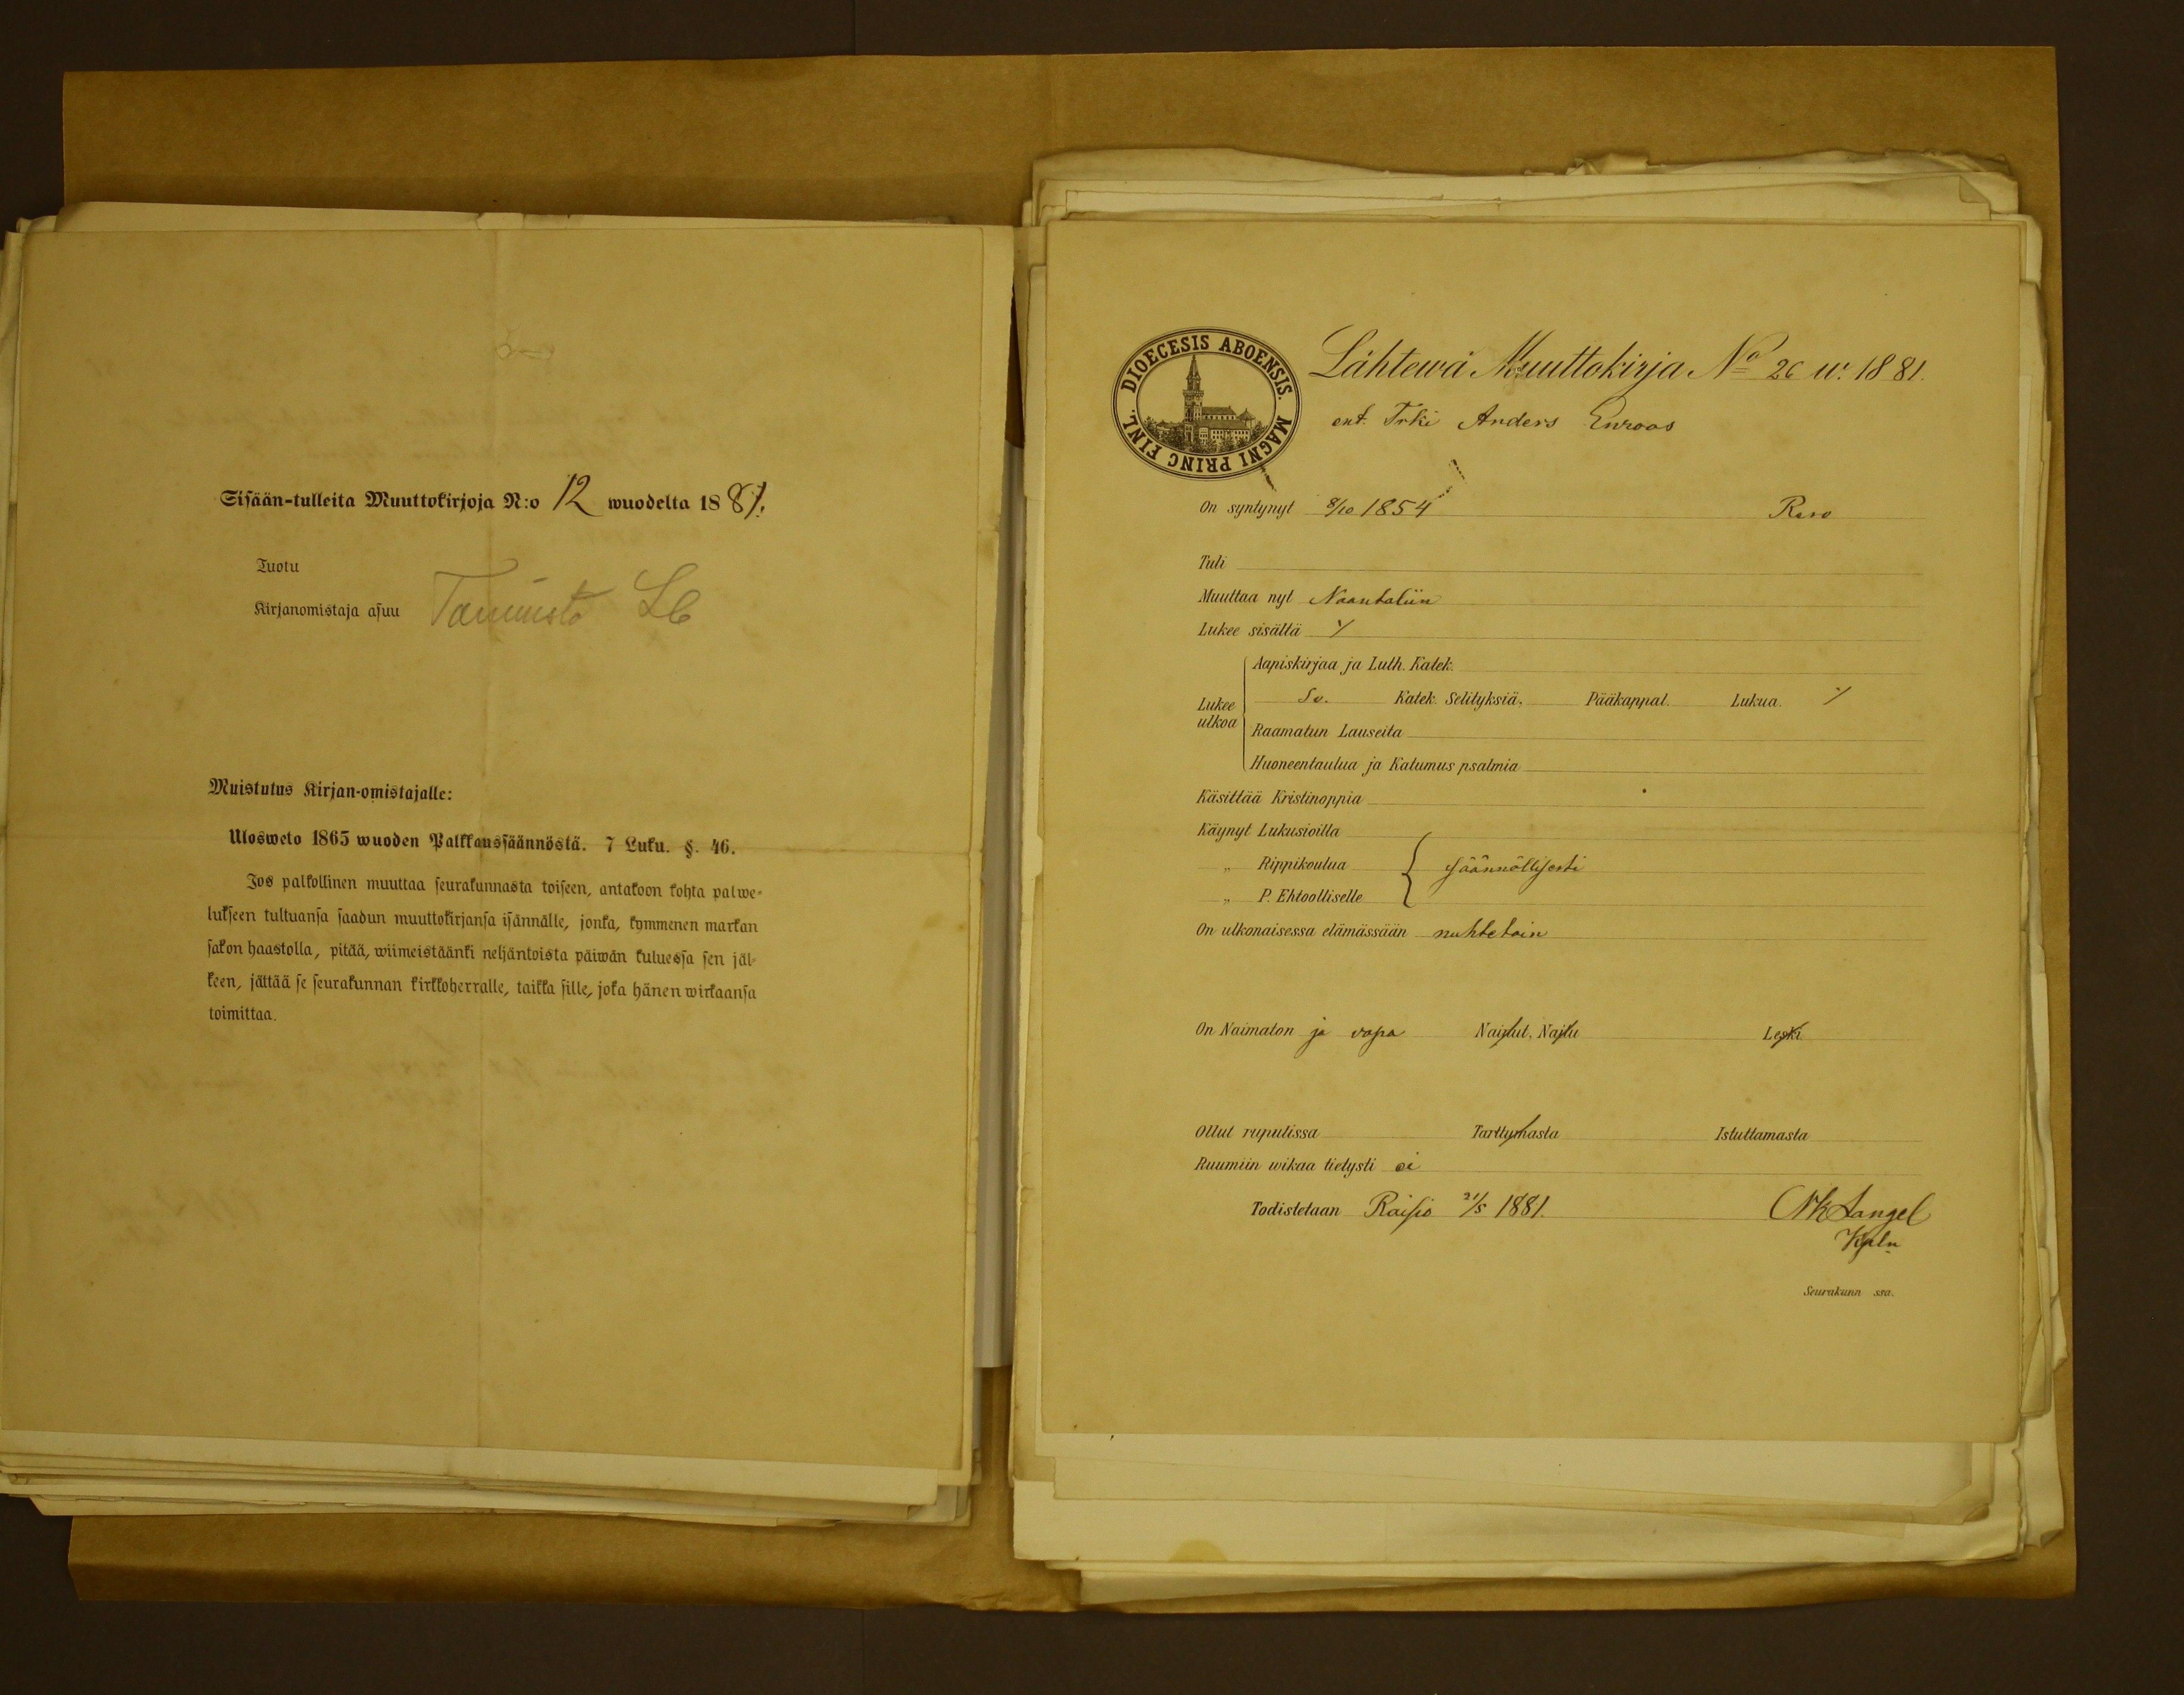 Sisään-tulleita Muuttokirjoja N:o 12 wuodelta 1881.
Tuotu
Kirjanomistaja asuu
Muistutus Kirjan-omistajalle:
Ulosweto 1865 wuoden Palkkaussäännöstä. 7 Luku. §. 46.
Jos palkollinen muuttaa seurakunnasta toiseen, antakoon kohta palwe-
lukseen tultuansa saadun muuttokirjansa isännälle, jonka, kymmenen markan
sakon haastolla, pitää, wiimeistäänki neljäntoista päiwän kuluessa sen jäl-
keen, jättää se seurakunnan kirkkoherralle, taikka sille, joka hänen wirkaansa
toimittaa.
DIOECESIS ABOENSIS. MAGNI PRINC FINL.
Lähtewä Muuttokirja No 26 w. 1881.
ent. Trki Anders Enroos
On syntynyt 8/10 1854
Tuli
Muuttaa nyt Naantaliin
Lukee sisältä
Aapiskirjaa ja Luth. Katek.
Lukee ulkoa
Sv. Katek. Selityksiä. Pääkappal. Lukua.
Raamatun Lauseita
Huoneentaulua ja Katumus psalmia
Käsittää Kristinoppia
Käynyt Lukusioilla
„ Rippikoulua
säännöllisesti
„ P. Ehtoolliselle
On ulkonaisessa elämässään nuhtetoin
On Naimaton ja vapa Naidut. Naitu Leski
Ollut rupulissa Tarttumasta Istuttamasta
Ruumiin wikaa tietysti ei
Todistetaan Raisio 21/5 1881.
Langel
Kpln
Seurakunn ssa.